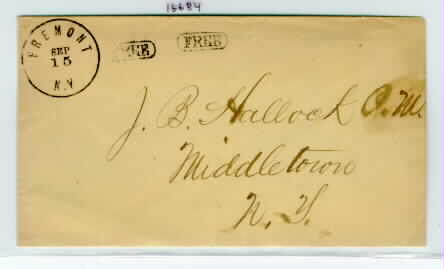 16684
FREMONT
SEP
15
N.Y
FREE
FREE
J. B. Hallock P. M.
Middletown
N. Y.